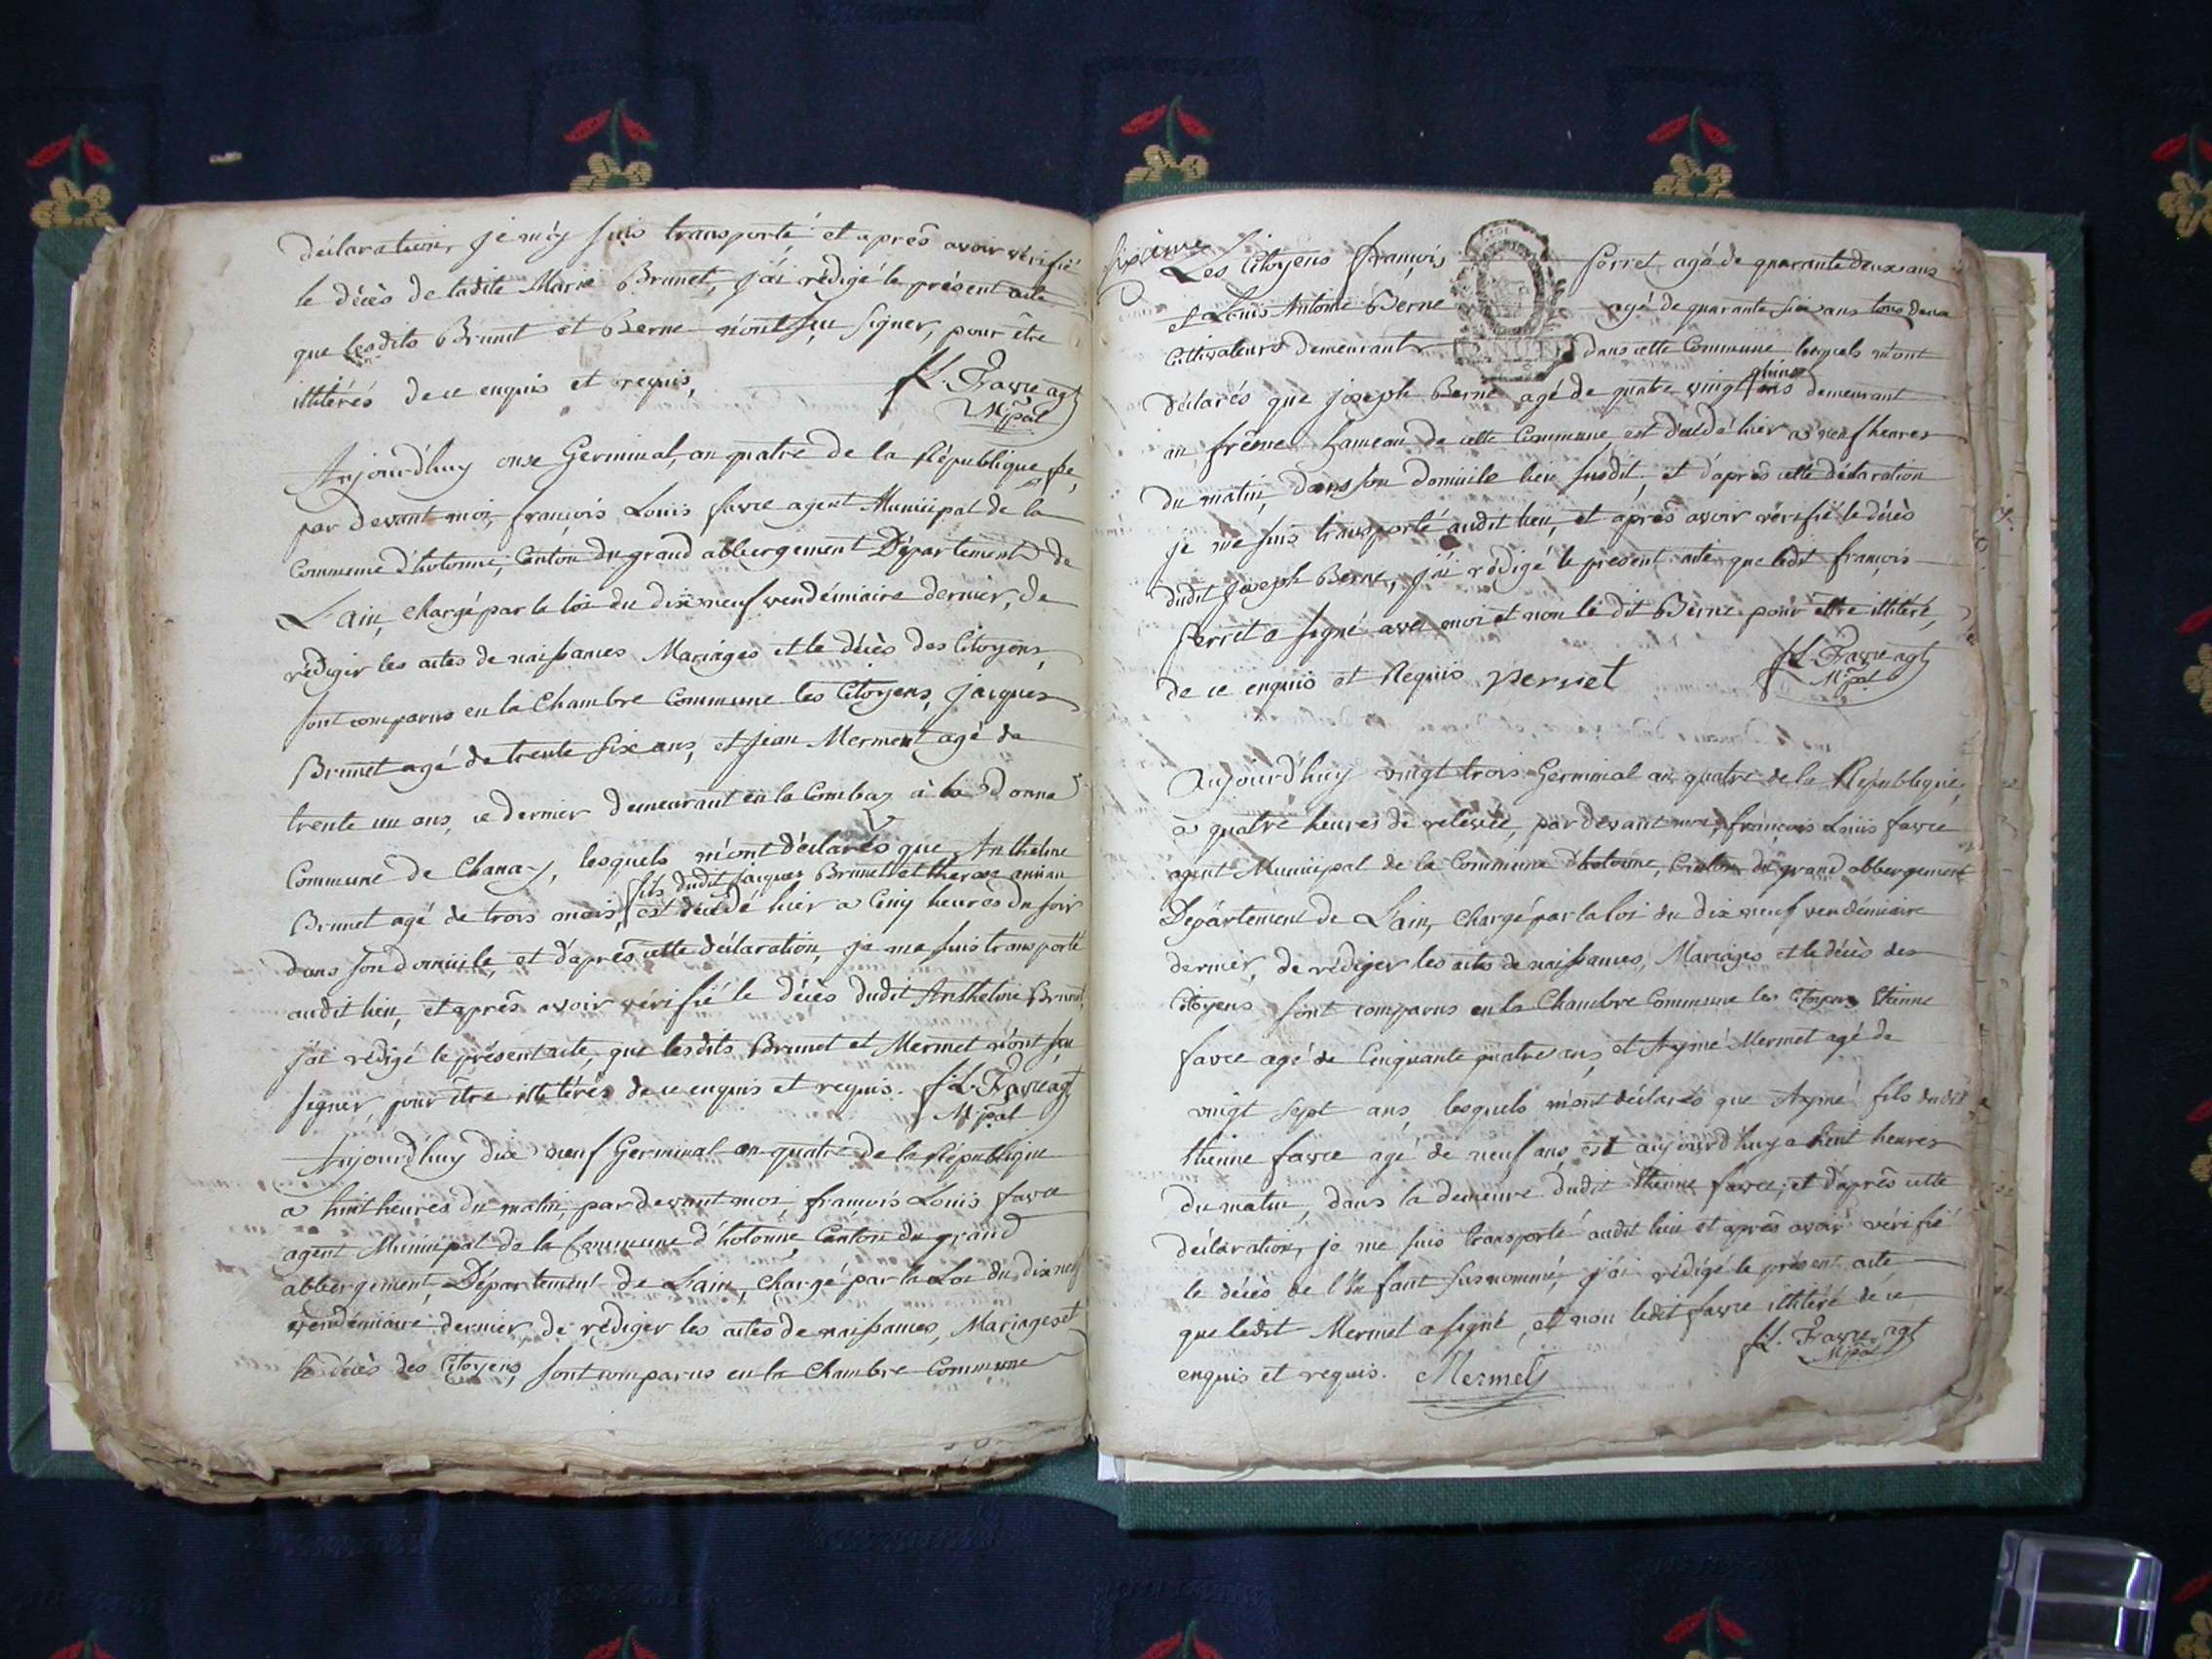 déclaration, je m'éy suis transporté et aprês avoir vérifié
le décès de ladite Marie Brunet, j'ai rédigé le présent acte
que lesdits Brunet et Berne n'ont sçu signer, pour être
illitérés de ce enquis et requis,
f. L. Favre agt
Mpal
Aujourd'huy onse Germinal, an quatre de la République fse,
par devant moi, françois Louis favre agent Municipal de la
Commune d'hotonne, Canton du grand abbergement Département de
L'ain, chargé par la loi du dix neuf vendémiaire dernier, de
rédiger les actes de naissances Mariages et le décès des Citoyens,
sont comparus en la Chambre Commune les Citoyens, jacques
Brunet agé de trente six ans, et jean Mermet agé de
trente un ans, ce dernier demeurant en la Combaz à la Donne
Commune de Chanay, lesquels m'ont déclarés que Anthelme
fils dudit jacques Brunet et
Brunet agé de trois mois, est décédé hier a Cinq heures du soir
dans son domicile, et d'aprês cette déclaration, je me suis transporté
audit lieu, et aprês avoir vérifié le décès dudit Anthelme Brunet,
j'ai rédigé le présent acte, que lesdits Brunet et Mermet n'ont sçu
signer, pour être illitérés de ce enquis et requis. f. L. Favre agt
Mpal
Aujourd'huy dix neuf Germinal an quatre de la République
a huit heures du matin, par devant moi, françois Louis favre
agent Municipal de la Commune d'hotonne Canton du grand
abbergement, Département de L'ain, chargé par la Loi du dix neuf
vendémiaire dernier, de rédiger les actes de naissances, Mariages et
le décès des Citoyens, sont comparus en la Chambre Commune
sixième
Les Citoyens françois perret agé de quarante deux ans
et Louis Antoine Berne agé de quarante six ans tous deux
Cultivateurs demeurant dans cette Commune lesquels m'ont
déclarés que joseph Berne agé de quatre vingt quinze ans demeurant
au frêne hameau de cette Commune, est décédé hier a neuf heures
du matin, dans son domicile lieu susdit, et d'aprês cette déclaration
je me suis transporté audit lieu, et aprês avoir vérifié le décès
dudit joseph Berne, j'ai rédigé le present acte que ledit françois
perret a signé avec moi et non le dit Berne pour être illitéré,
de ce enquis et Requis perret
f. L. Favre agt
Mpal
Aujourd'huy vingt trois Germinal an quatre de la République,
a quatre heures de relevée, par devant moi, françois Louis favre
agent Municipal de la Commune d'hotonne, Canton du grand abbergement
Département de L'ain, chargé par la loi du dix neuf vendémiaire
dernier, de rédiger les actes de naissances, Mariages et le décès des
Citoyens sont comparus en la Chambre Commune les Citoyens Etienne
favre agé de Cinquante quatre ans, et Aymé Mermet agé de
vingt sept ans, lesquels m'ont déclarés que Aymé fils dudit
Etienne favre agé de neuf ans, est aujourd'huy a huit heures
du matin, dans la demeure dudit Etienne favre, et d'aprês cette
déclaration, je me suis transporté audit lieu et aprês avoir vérifié
le décès de l'Enfant susnommé, j'ai rédigé le présent acte
que ledit Mermet a signé, et non ledit favre illitéré de ce
enquis et requis. Mermet
f. L. Favre agt
Mpal